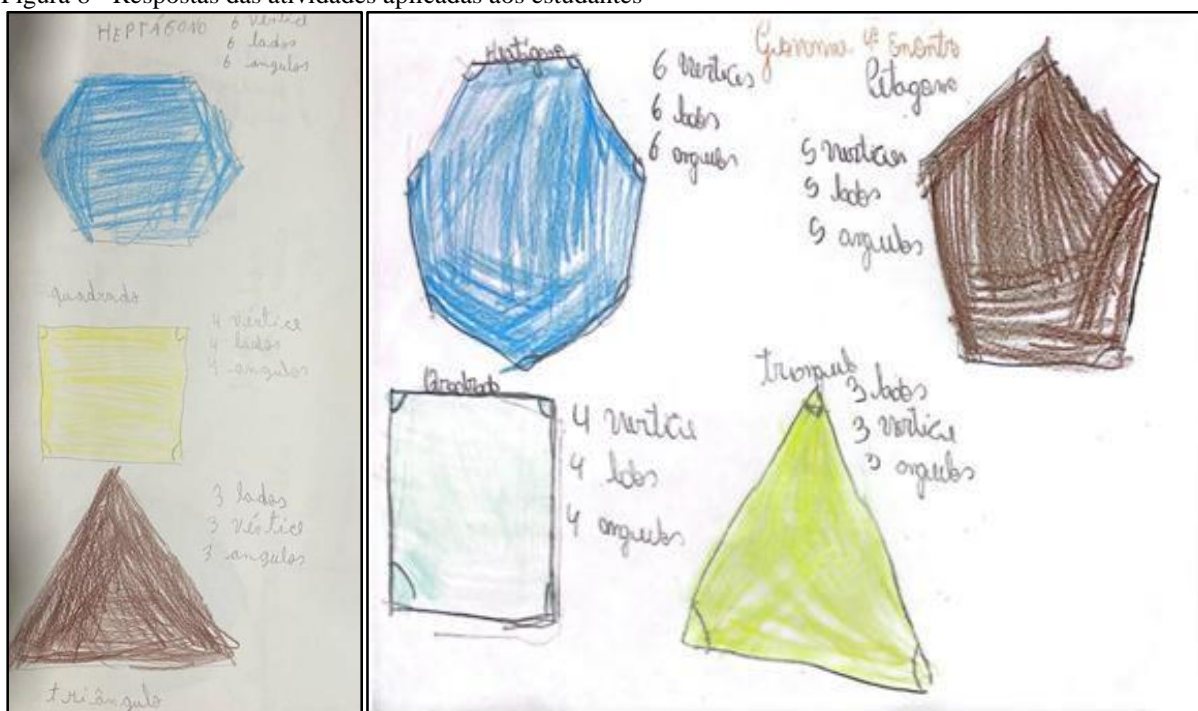 Figura 6 - Respostas das atividades aplicadas aos estudantes
HEPTÁGONO
6 vértice
6 lados
6 angulos
quadrado
4 vértice
4 lados
4 angulos
3 lados
3 vértice
3 angulos
triângulo
Heptágono
6 vertices
6 lados
6 angulos
4º Encontro
Pitagono
5 vertices
5 lados
5 angulos
Quadrado
4 vertice
4 lados
4 angulos
3 lados
3 vertice
3 angulos